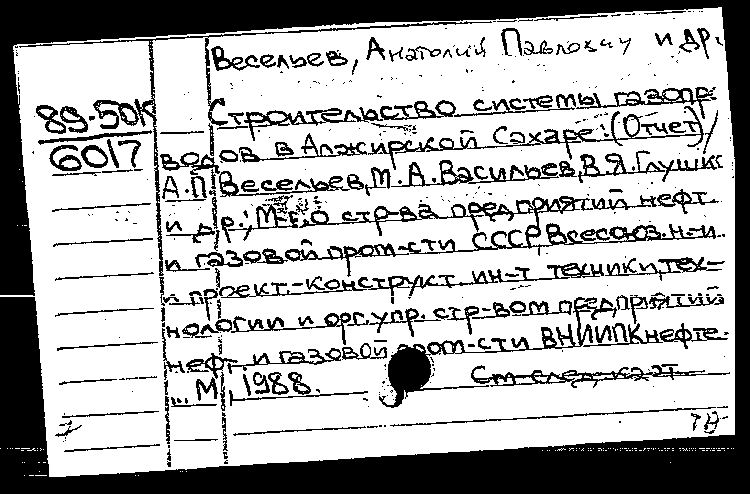 Весельев, Анатолий Павлович и др.
89-50К
6017
Строительство системы газопр
водов в Алжирской Сахаре: (Отчет) /
А.П. Весельев, М.А. Васильев, В.Я. Глушко
и др.; М-во стр-ва предприятий нефт.
и газовой пром-сти СССР, Всесоюз. н.-и.
и проект.-конструкт. ин-т техники, тех-
нологии и орг. упр. стр-вом предприятий
нефт. и газовой пром-сти ВНИИПКнефте-
... М., 1988.
См след. к-т